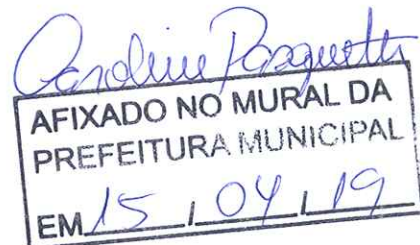 Caroline Pasquetti
AFIXADO NO MURAL DA
PREFEITURA MUNICIPAL
EM 15 / 04 / 19